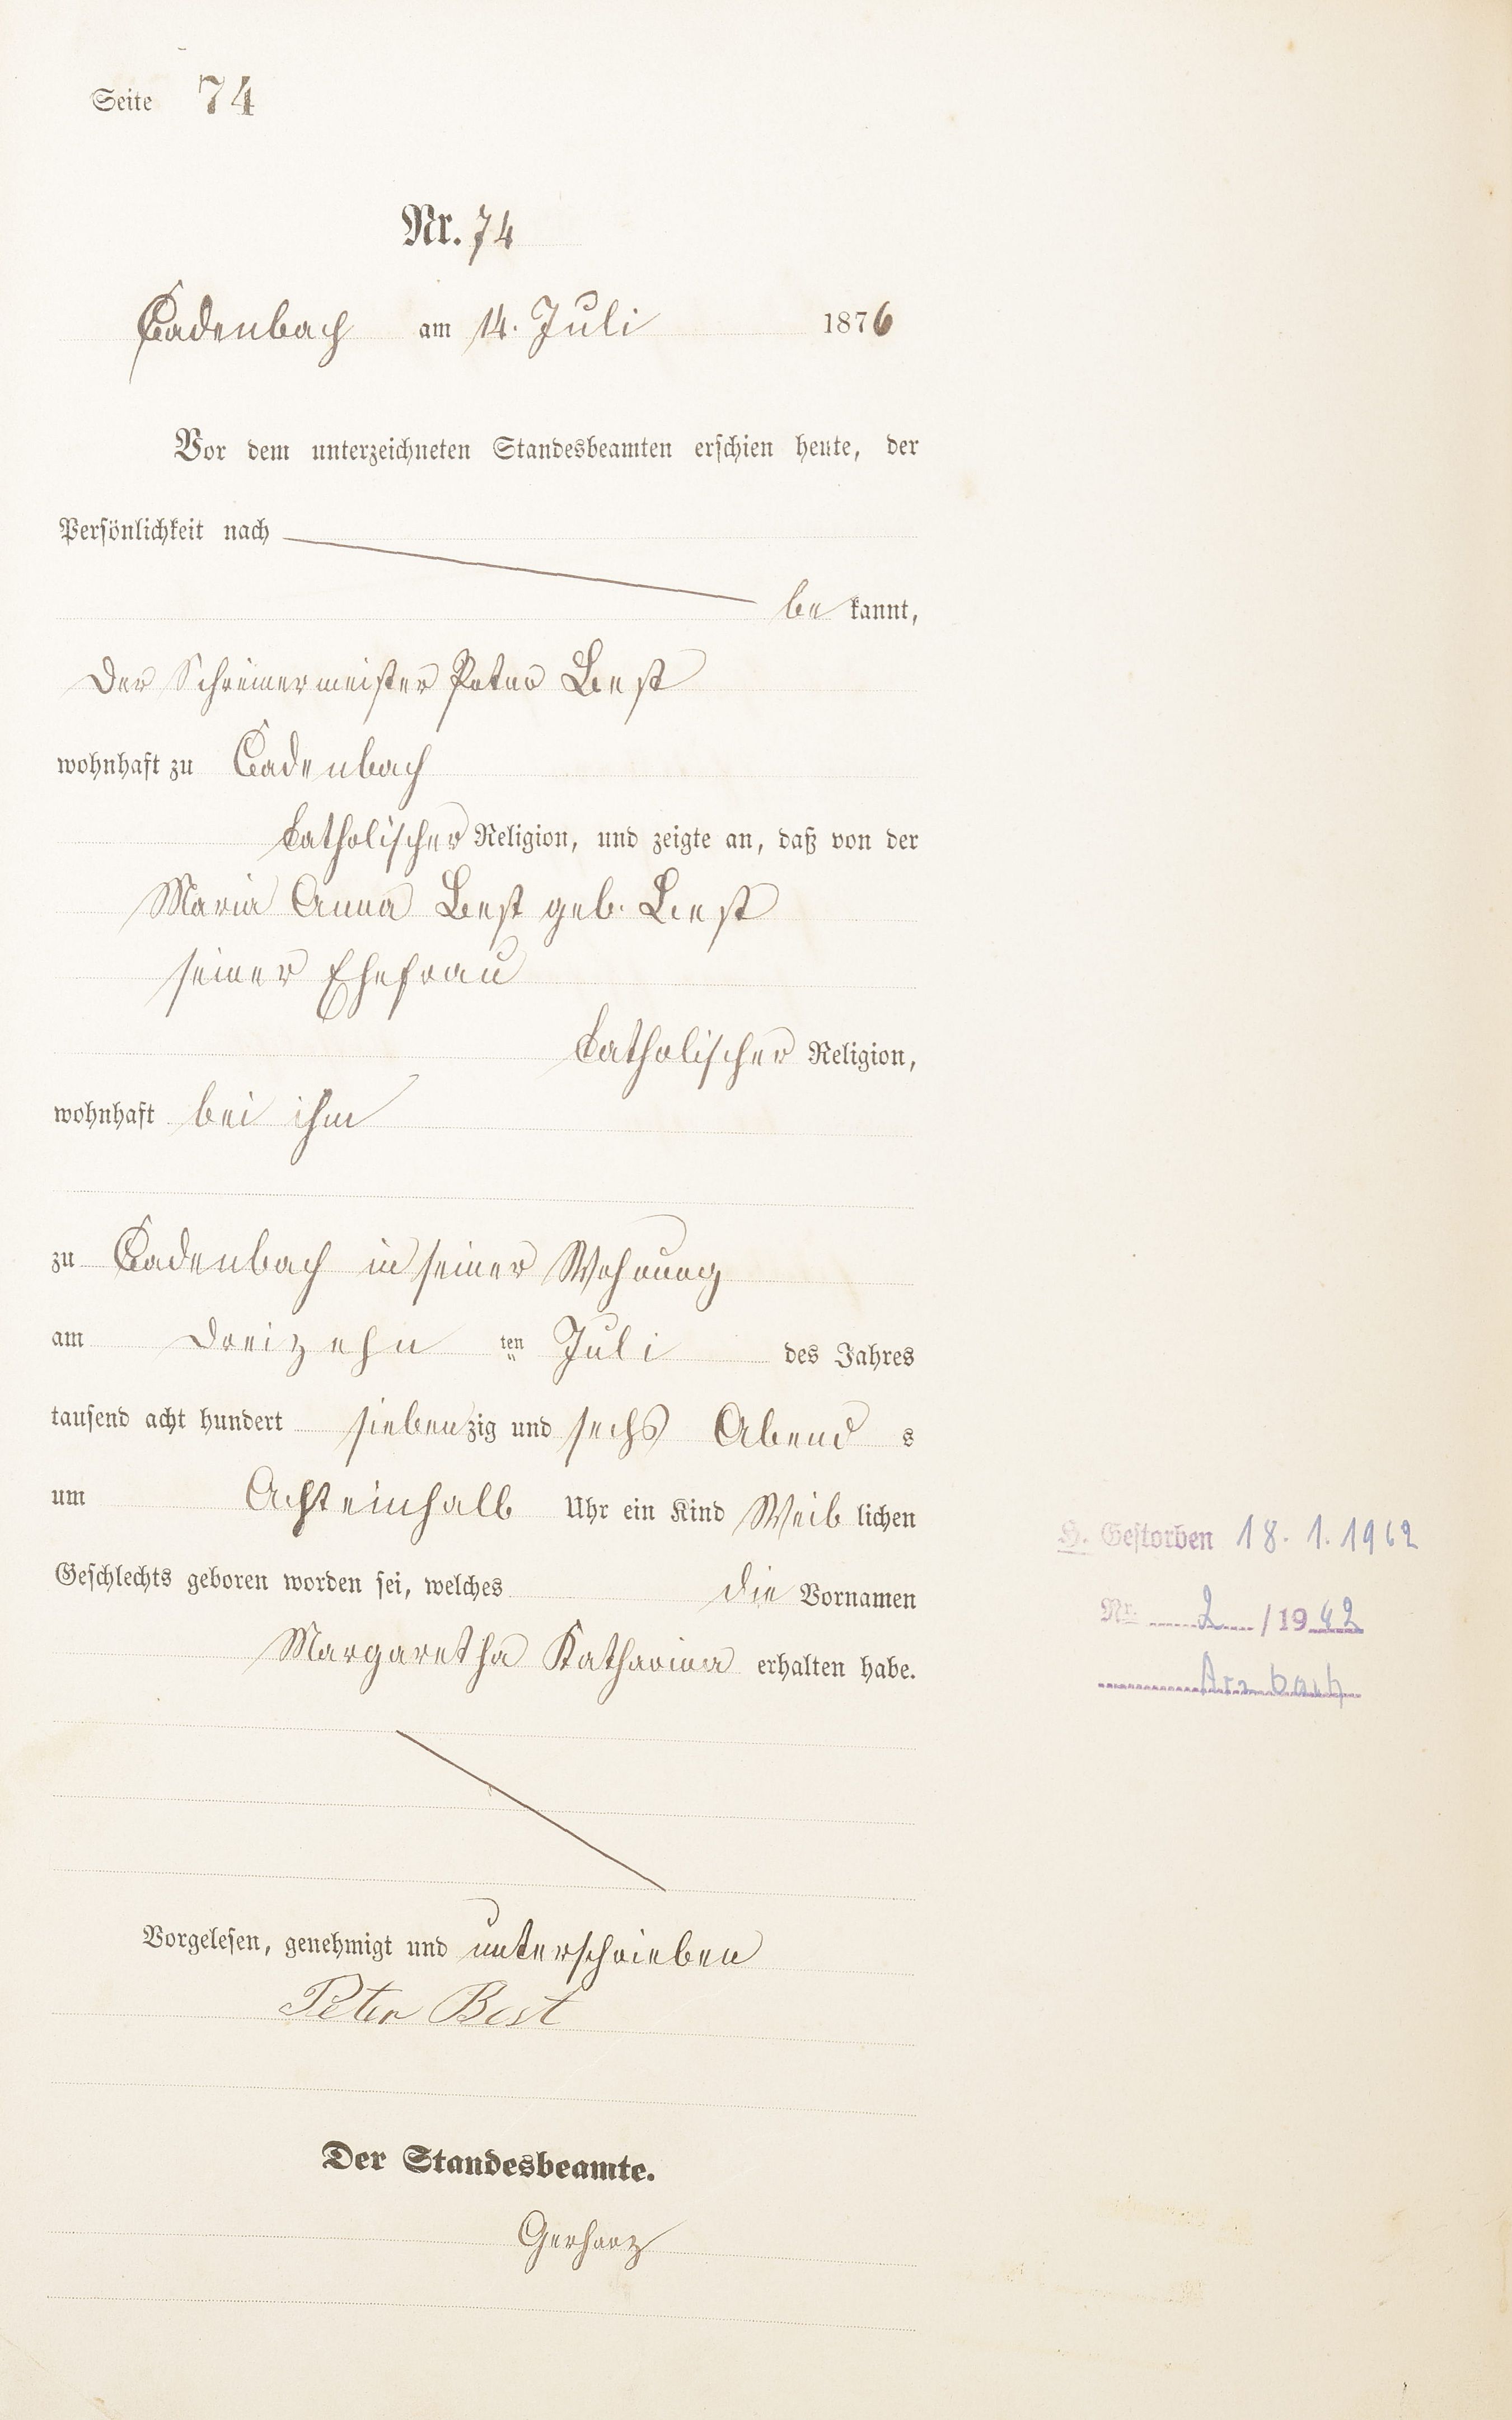 Seite 74
Nr. 74
Cadenbach am 14. Juli 1876
Vor dem unterzeichneten Standesbeamten erschien heute, der
Persönlichkeit nach
be kannt,
der Schreinermeister Peter Best
wohnhaft zu Cadenbach
katholischer Religion, und zeigte an, daß von der
Maria Anna Best geb. Best
seiner Ehefrau
katholischer Religion,
wohnhaft bei ihm
zu Cadenbach in seiner Wohnung
am dreizehn ten Juli des Jahres
tausend acht hundert siebenzig und sechs Abend s
um Achteinhalb Uhr ein Kind Weib lichen
Geschlechts geboren worden sei, welches die Vornamen
Margaretha Katharina erhalten habe.
Vorgelesen, genehmigt und unterschrieben
Peter Best
Der Standesbeamte.
Gerharz
Gestorben 18. 1. 1962
Nr. 2 / 19 62
Arzbach